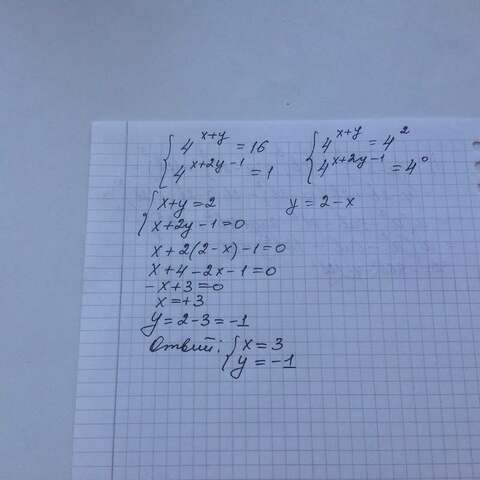 { 4^{x+y} = 16    { 4^{x+y} = 4^2
{ 4^{x+2y-1} = 1    { 4^{x+2y-1} = 4^0
{ x+y=2    y = 2-x
{ x+2y-1=0
x+2(2-x)-1=0
x+4-2x-1=0
-x+3=0
x=+3
y=2-3=-1
Ответ: { x=3
{ y=-1